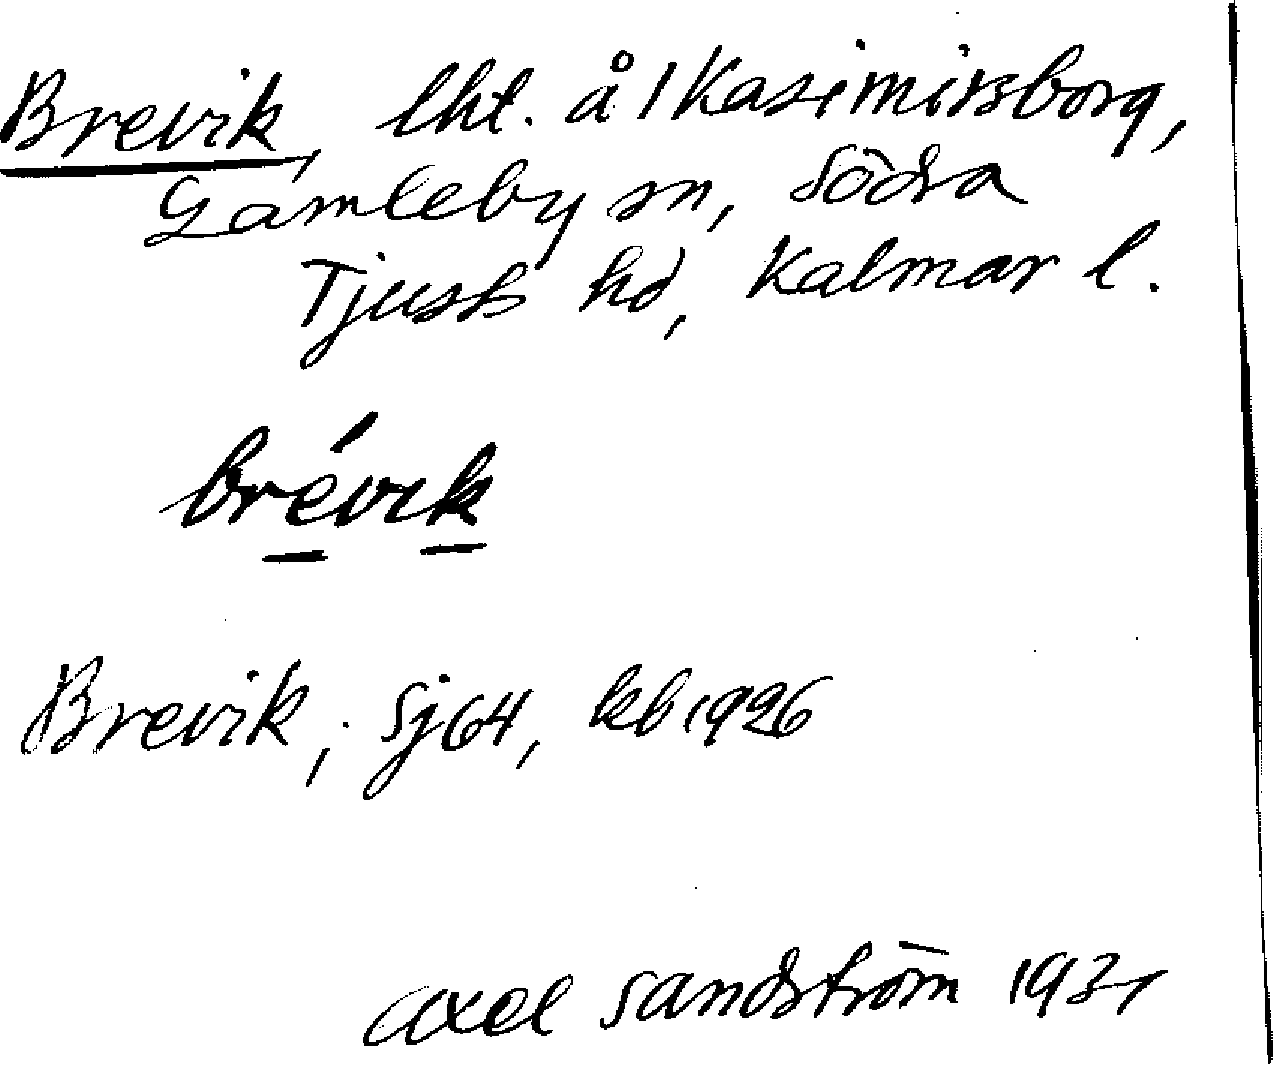 Brevik, lht. å 1 Kasimirsborg,
Gamleby sn, Södra
Tjusts hd, Kalmar l.
brévik
Brevik, Sj64, kb 1926
Axel Sandström